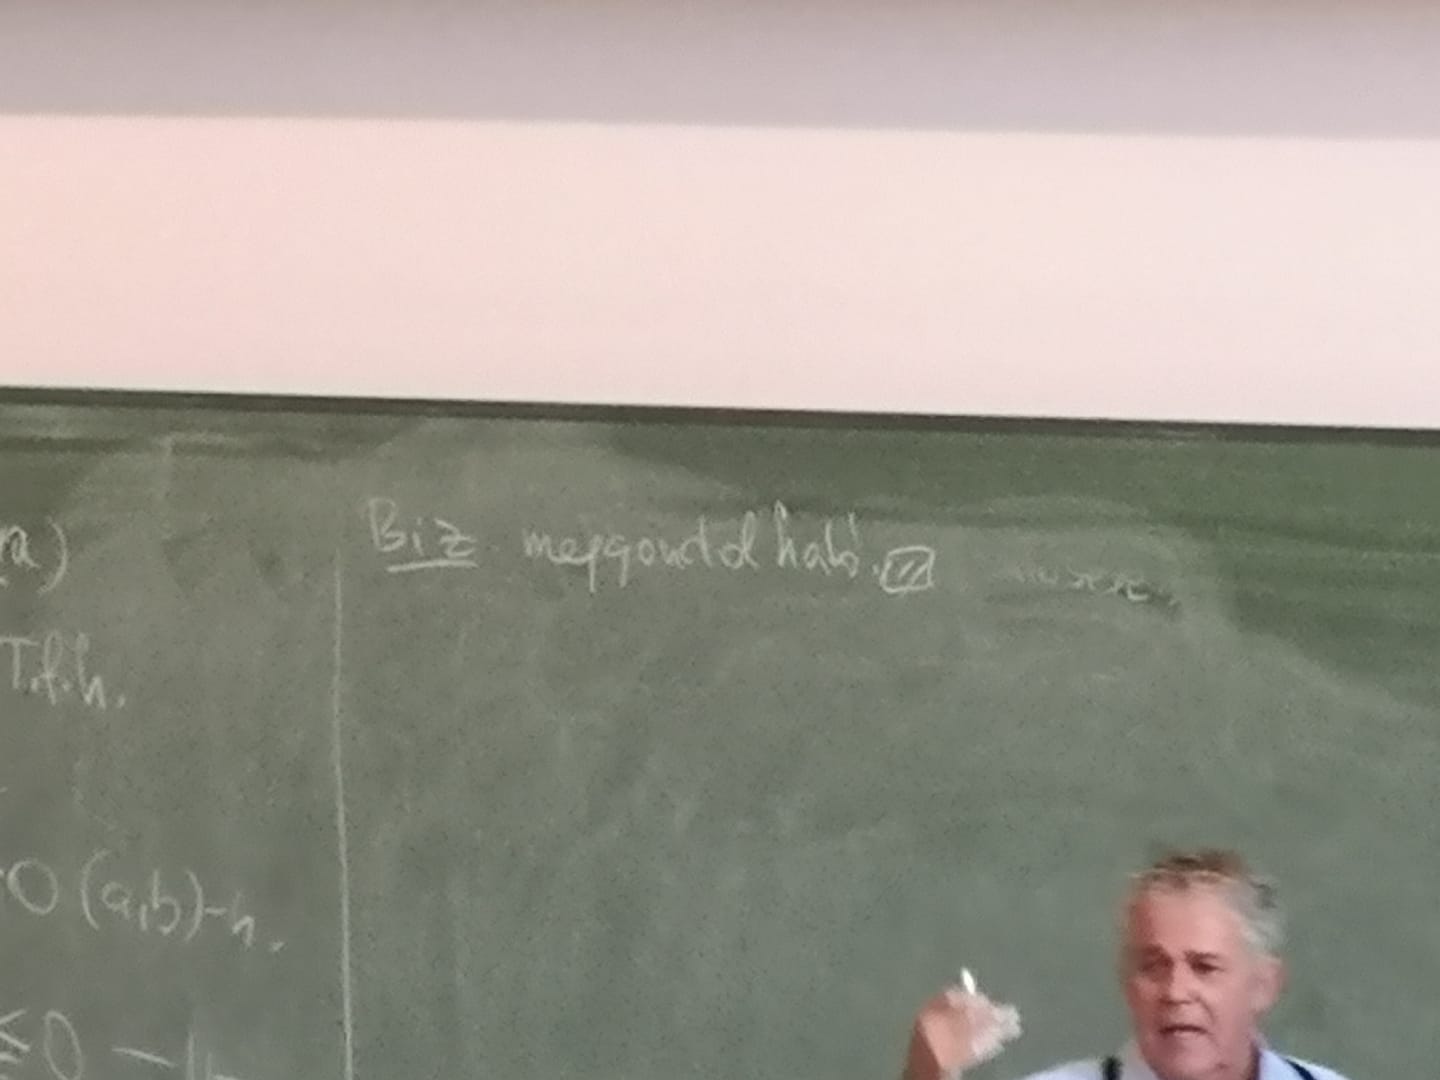 ra)
T.f.h.
0 (a,b)-n.
≤0
Biz meggondolható.